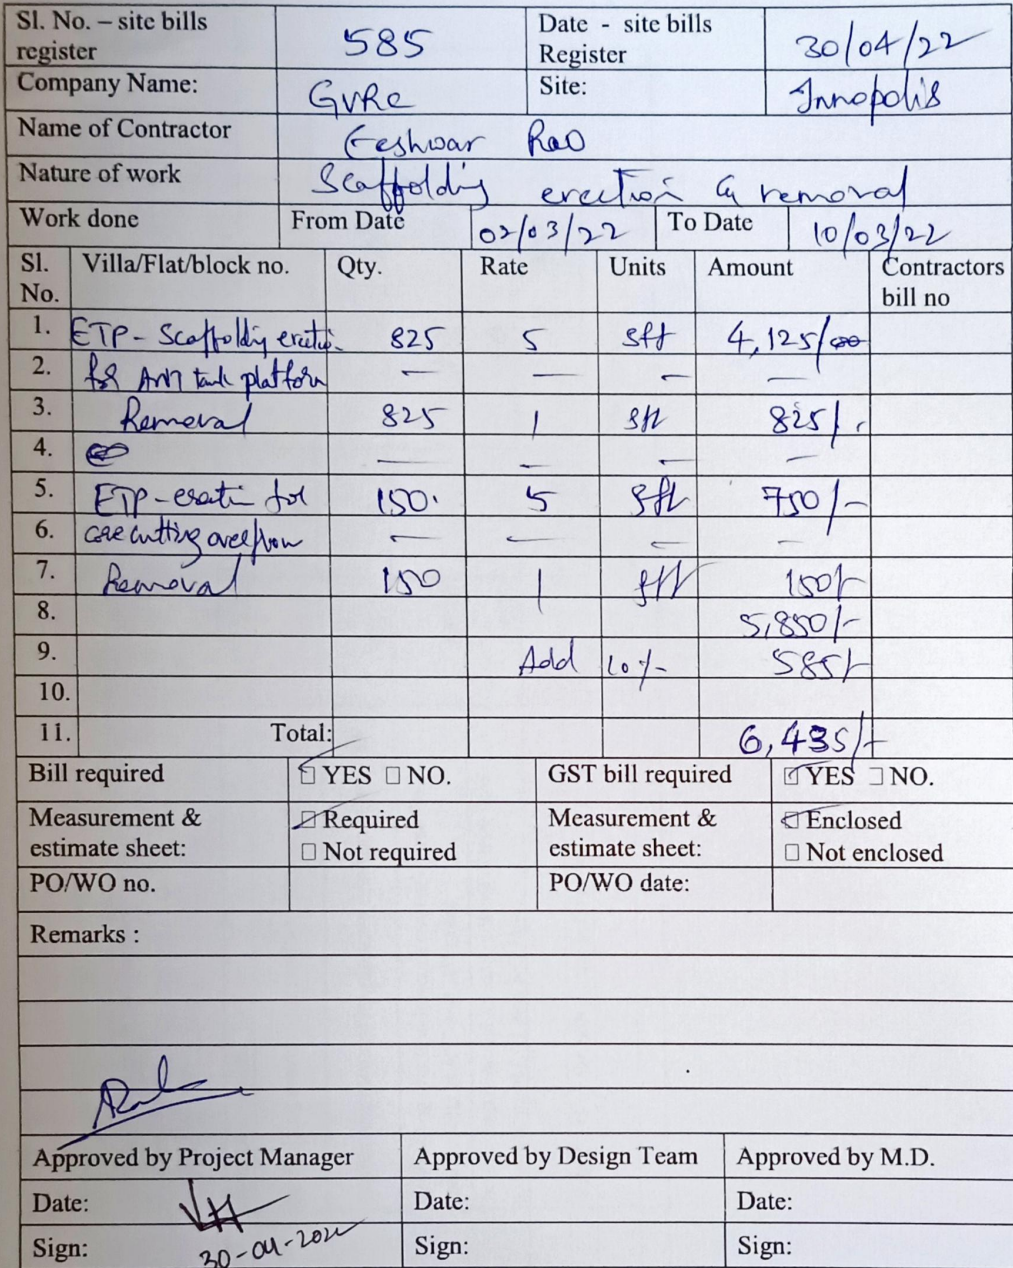 Sl. No. – site bills register 585 Date - site bills Register 30/04/22
Company Name: GVRC Site: Innopolis
Name of Contractor Eeshwar Rao
Nature of work Scaffolding erection & removal
Work done From Date 02/03/22 To Date 10/03/22
Sl. No. Villa/Flat/block no. Qty. Rate Units Amount Contractors bill no
1. ETP - Scaffolding erection 825 5 sft 4,125/
2. for tank platform — — — —
3. Removal 825 1 sft 825/.
4. — — — —
5. ETP - for 150 5 sft 750/-
6. core cutting — — — —
7. Removal 150 1 sft 150/-
8. 5,850/-
9. Add 10% 585/-
10.
11. Total: 6,435/-
Bill required ☑ YES ☐ NO. GST bill required ☑ YES ☐ NO.
Measurement & estimate sheet: ☑ Required Measurement & estimate sheet: ☑ Enclosed
☐ Not required ☐ Not enclosed
PO/WO no. PO/WO date:
Remarks :
Approved by Project Manager Approved by Design Team Approved by M.D.
Date: Date: Date:
Sign: 30-04-2022 Sign: Sign: